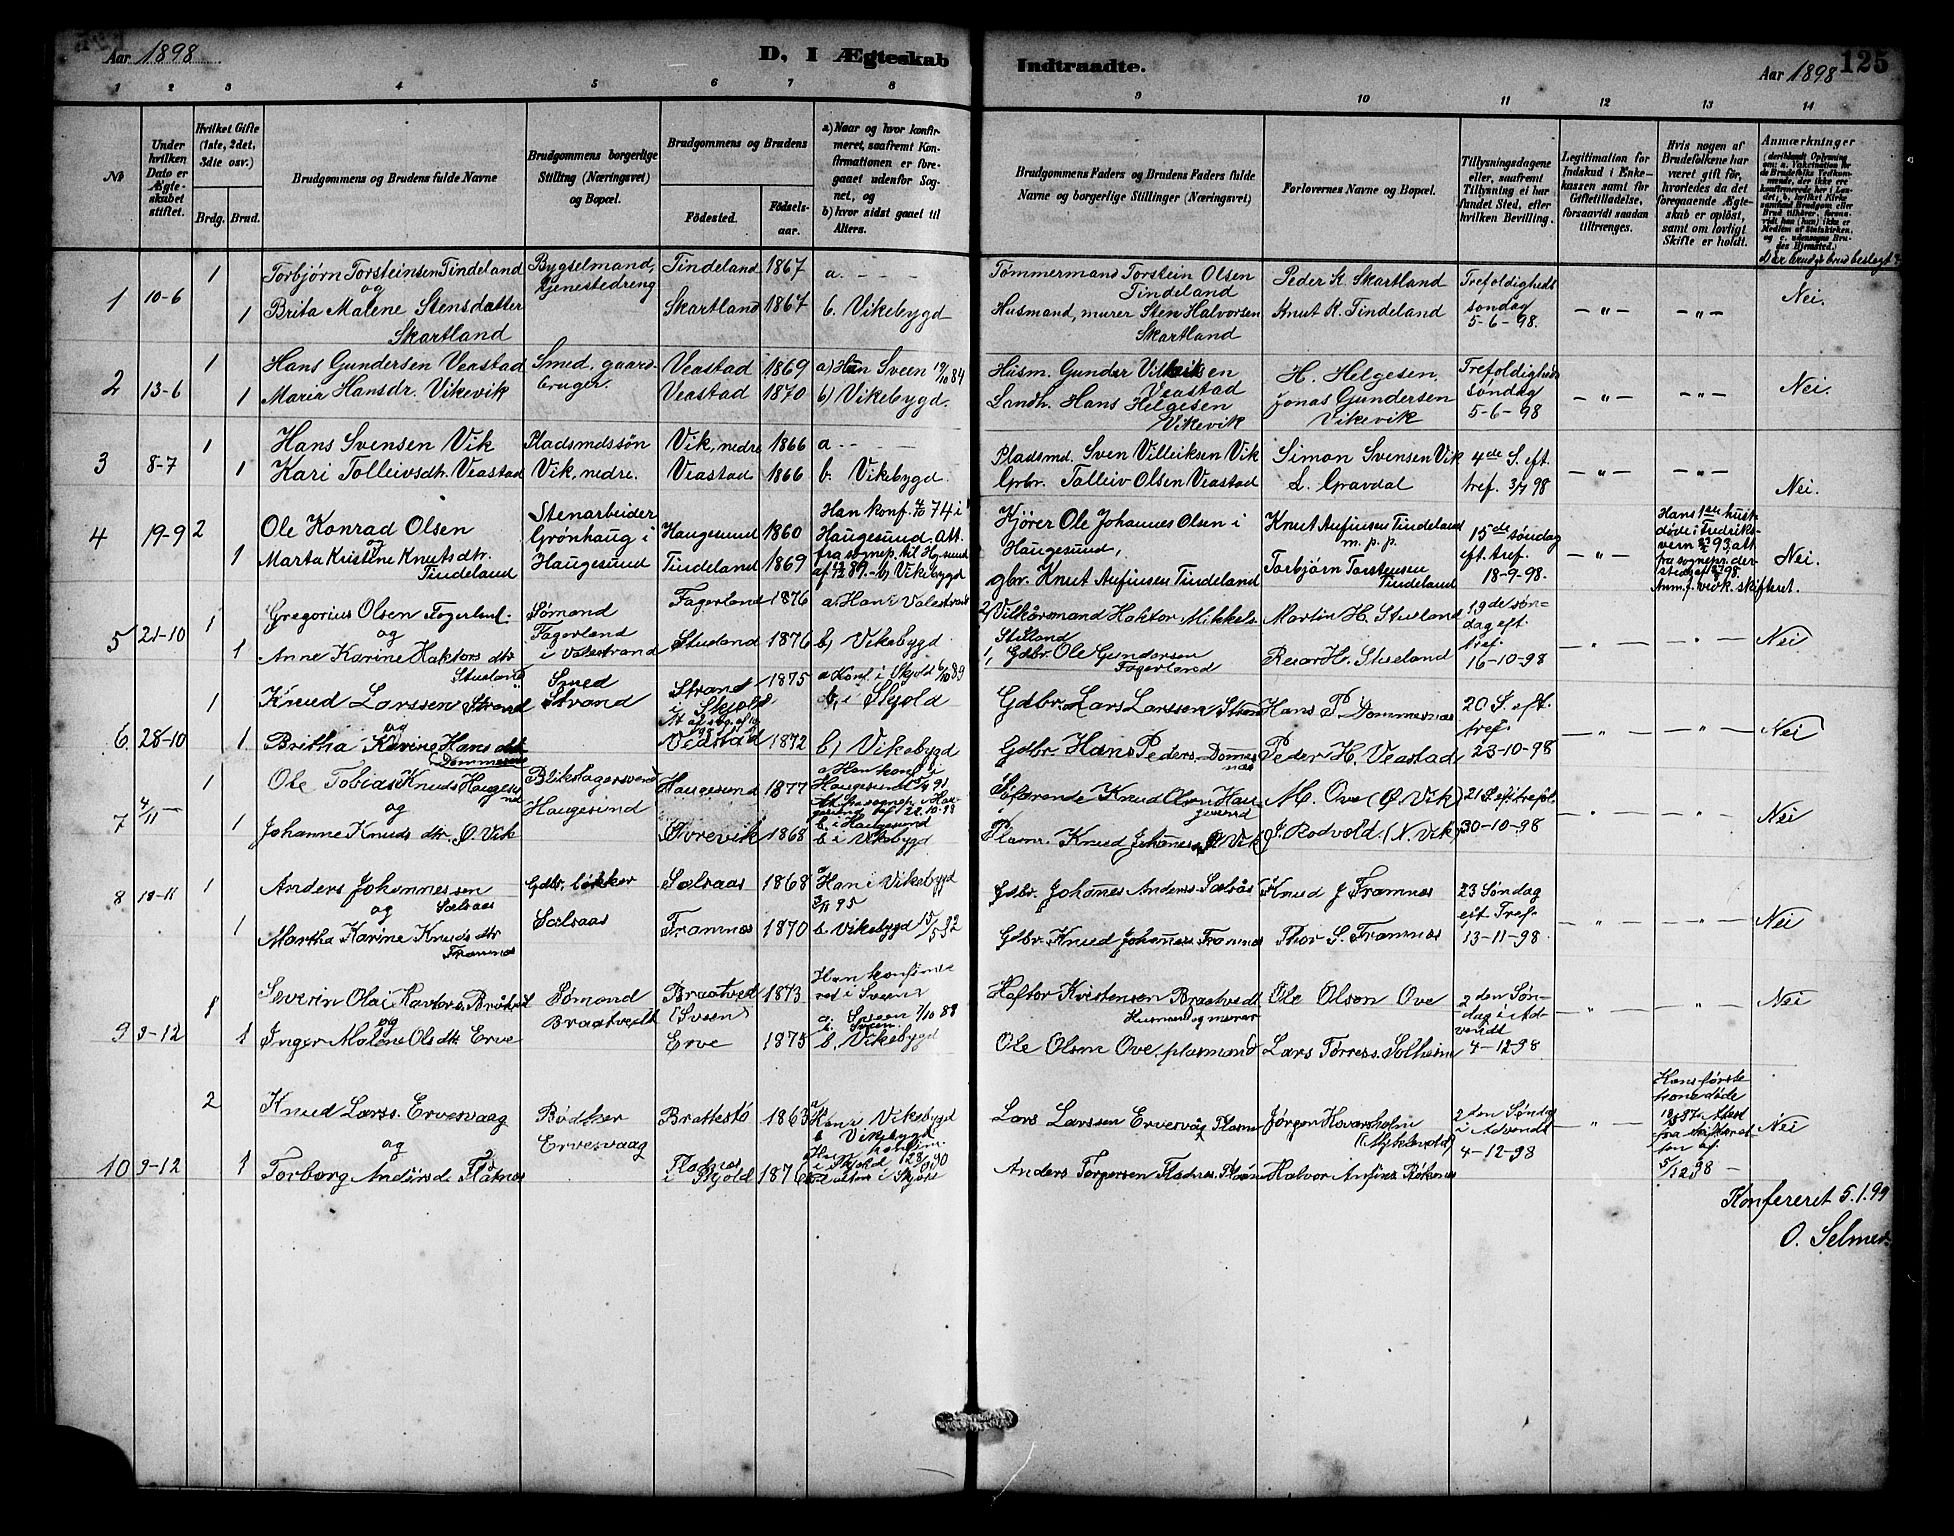 Aar 1898
D, I Ægteskab
Indtraadte.
Aar 1898
125
1 2 3 4 5 6 7 8
9 10 11 12 13 14
No
Under hvilken Dato er Ægteskabet stiftet.
Hvilket Gifte (1ste, 2det, 3die osv.)
Brdg. Brud.
Brudgommens og Brudens fulde Navne
Brudgommens borgerlige Stilling (Næringsvei) og Bopæl.
Brudgommens og Brudens
Fødested.
Fødselsaar.
a) Naar og hvor konfirmeret, saafremt Konfirmationen er foregaaet udenfor Sognet, og
b) hvor sidst gaaet til Alters.
Brudgommens Faders og Brudens Faders fulde Navne og borgerlige Stillinger (Næringsvei)
Forlovernes Navne og Bopæl.
Tillysningsdagene eller, saafremt Tillysning ei har fundet Sted, efter hvilken Bevilling.
Legitimation for Indskud i Enkekassen samt for Giftetilladelse, forsaavidt saadan tiltrænges.
Hvis nogen af Brudefolkene har været gift før, hvorledes da det foregaaende Ægteskab er opløst, samt om lovligt Skifte er holdt.
Anmærkninger
Er brudg. brud beslægt?
1
10-6
1
Torbjørn Torsteinsen Tindeland
og
1
Brita Malene Stensdatter
Skartland
Bygselmand,
Tindeland 1867
Skartland 1867
a. - - -
b. Vikebygd
Tømmermand Torstein Olsen
Tindeland
Husmand, murer Sten Halvorsen
Skartland
Peder K. Skartland
Knut K. Tindeland
Trefoldigheds
søndag
5-6-98.
— " —
— " —
Nei.
2
13-6
1
Hans Gundersen Veastad
1
Maria Hansdr. Vikevik
Smed, gaard-
bruger.
Veastad 1869
Veastad 1870
a) Han Sveen 19/10 84
b) Vikebygd.
Husm. Gunder
Veastad
Landh. Hans Helgesen
Vikevik
H. Helgesen.
Jonas Gundersen
Vikevik
Trefoldigheds
søndag
5-6-98
— " —
— " —
Nei.
3
8-7
1
Hans Svensen Vik
1
Kari Tolleivsdtr. Veastad
Pladsmdssøn
Vik, nedre.
Vik, nedre 1866
Veastad 1866
a. - - -
b. Vikebygd.
Pladsmd. Sven Villeiksen Vik
Grbr. Tolleiv Olsen Veastad
Simon Svensen Vik
L. Gravdal
4de S. eft.
tref. 3/7 98
— " —
— " —
Nei.
4
19-9
2
Ole Konrad Olsen
og
1
Marta Kristine Knutsdtr.
Tindeland
Stenarbeider
Grønhaug i
Haugesund
Haugesund 1860
Tindeland 1869
Han konf. 74 i
Haugesund. Att.
fra sognep. til Hg.sund
89. - b) Vikebygd
Kjører Ole Johannes Olsen i
Haugesund,
gbr. Knut Aufinsen Tindeland
Knut Aufinsen Tindeland
m. p. p.
Torbjørn Torstensen
Tindeland
15de søndag
eft. tref.
18-9-98.
— " —
Hans 1ste hust.
døde i Fredriks-
vern 93, att.
fra sognepr. der-
Nei.
5
21-10
1
Gregorius Olsen Fagerland.
og
1
Anne Karine Haktors dtr
Stueland
Sømand
Fagerland
i Valestrand
Fagerland 1876
Stueland 1876
a. Han i Valestrand
b) Vikebygd
2, Vilkårsmand Haktor Mikkels.
Stueland
1, Gdbr. Ole Gundersen
Fagerland
Martin H. Stueland
H. Stueland
19de søn-
dag eft.
tref.
16-10-98
— " —
— " —
Nei
6
28-10
1
Knud Larssen Strand
og
1
Britha Karine Hans dtr
Dommesnes
Smed
Strand
Strand 1875
i Skjold
Veastad 1872
a Konf. i Skjold 6/10 89
b, i Skjold
b) Vikebygd
Gdbr. Lars Larssen Strand
Gdbr. Hans Peders. Dommesnæs
Hans P Dommesnæs
Peder H. Veastad
20 S. eft.
tref.
23-10-98
— " —
— " —
Nei
7
4/11
1
Ole Tobias Knuds Haugesund
og
1
Johanne Knuds dtr. Ø. Vik
Blikslagersvend
Haugesund
Haugesund 1877
1868
a. Han konf. i
Haugesund
b. i Haugesund
b i Vikebygd
Søfarende Knud Olsen Haugesund
Plsm. Knud Johanes. Ø Vik
M. Ove (Ø. Vik)
J. Rodvold. (N. Vik)
21 S. ef. trefol.
30-10-98
— " —
— " —
Nei
8
18-11
1
Anders Johannessen
og Sælsaas
1
Martha Karine Knuds dtr
Framnæs
Gdbr.
Sælsaas
Sælsaas 1868
Framnæs 1870
a Han i Vikebygd
95
b. Vikebygd 15/5 92
Gdbr. Johanes Anders. Sælsås
Gdbr. Knud Johannes Framnæs
Knud J Framnæs
Thor S. Framnæs
23 Søndag
eft Tref.
13-11-98.
— " —
— " —
Nei
9
9-12
1
Severin Olai Havtors. Bråtveit
og
1
Inger Malene Ols dtr Erve
Sømand
Braatveidt
Braatveit 1873
(Sveen)
Erve 1875
Han konfirme-
ret i Sveen
a. Sveen 7/10 88
b. Sveen
b, Vikebygd
Haftor Kristensen Braatvedt
Husmand og murer
Ole Olsen Ove, plasmand
Ole Olson Ove
Lars Tørress. Solheim
2den Søn-
dag i Ad-
vendt
4-12-98
— " —
— " —
Nei
10
9-12
2
Knud Larss. Ervesvaag
og
1
Torborg Flatnæs
Bødtker
Ervesvaag
Brattestø 1863
Flatnæs
i Skjold 1876
a Han i Vikebygd
b Vikebygd
Hun konfirm.
i Skjold
i Skjold
Lars Larssen Ervesvåg Plasm
Anders Torgersen Flatnes.
Jørgen Hovarsholm
Halvor Anfins.
2den Søndg
i Advendt
4-12-98
— " —
Hans første
kone døde
fra skifteret-
ten af
5/12 98 —
Nei
Konfereret 5.1.99
O. Selmer.